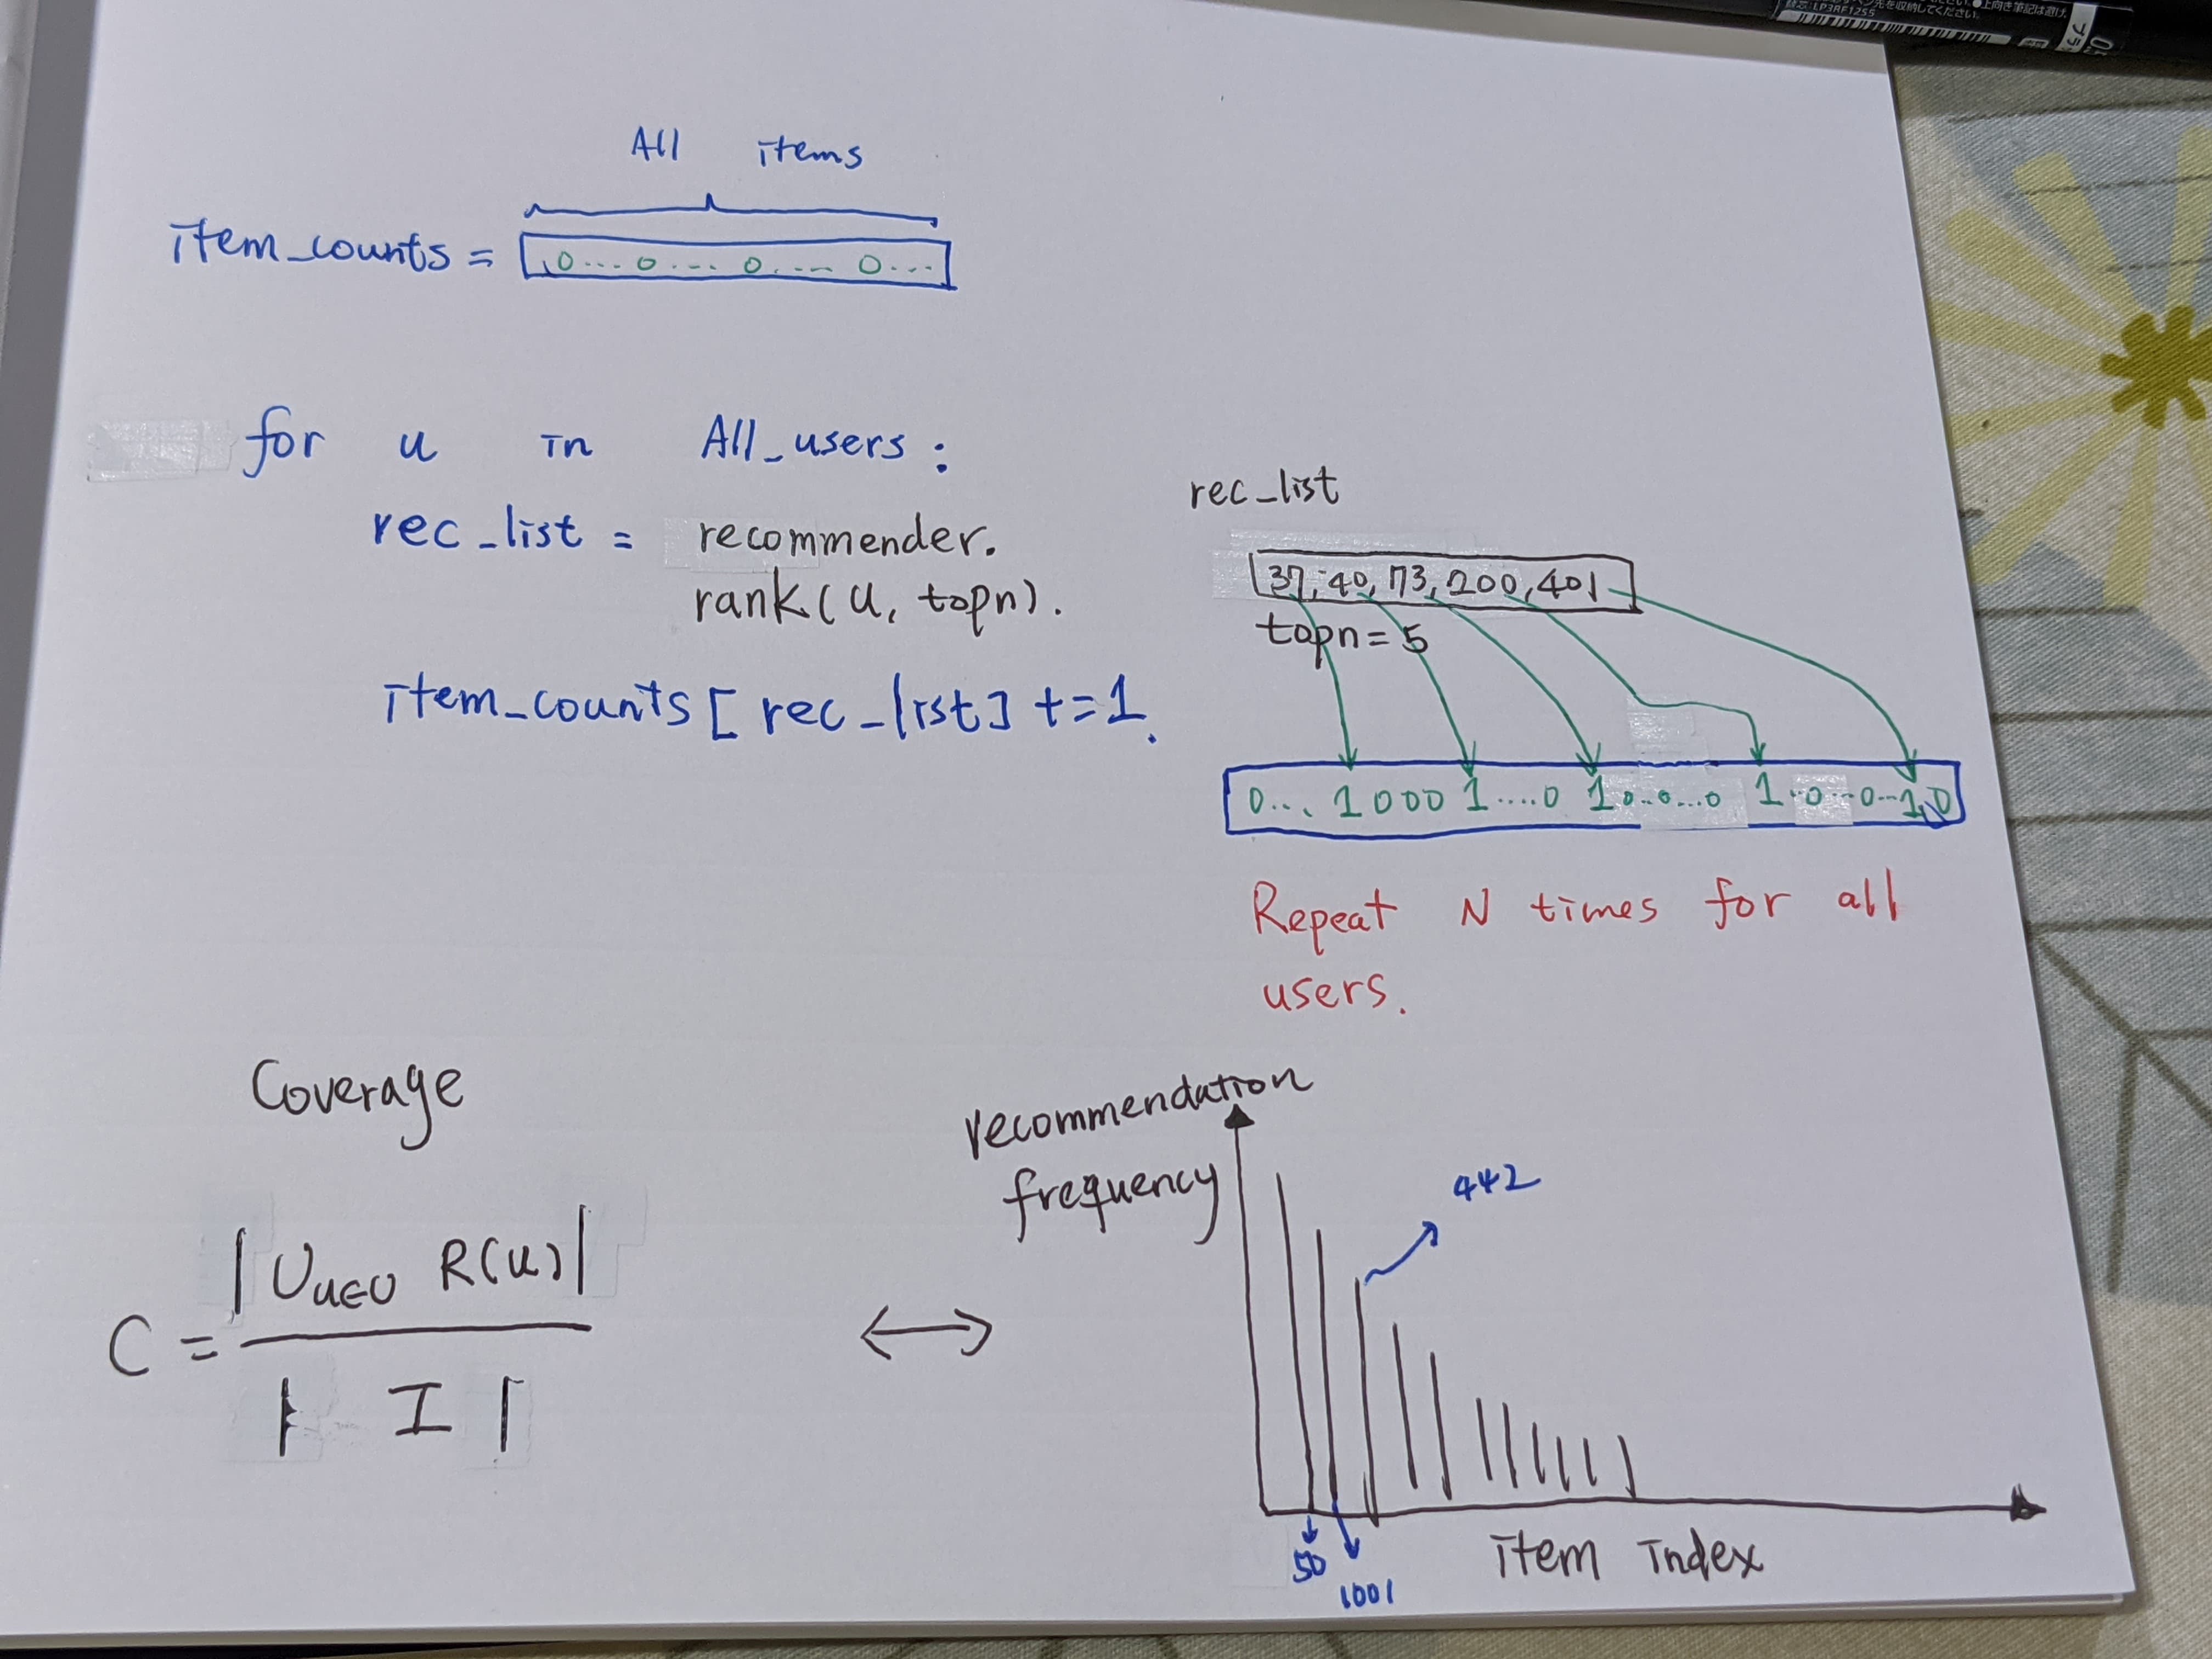 All items
item_counts = 0... 0.... 0.... 0...
for u in All_users :
rec_list = recommender.
rank(u, topn).
item_counts [ rec_list ] += 1.
rec_list
37, 40, 73, 200, 401
topn = 5
0... 1 0 0 0 1....0 1 0..0...0 1..0...0...1, 0
Repeat N times for all
users.
Coverage
C = |U u∈U R(u)| / | I |
recommendation
frequency
442
50
1001
item index
LP3RF12S5